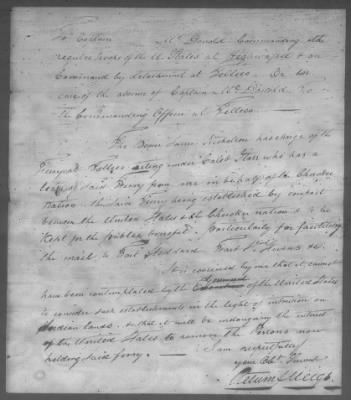 To Captain McDonald Commanding the
regular troops of the U. States at Highwassee & on
Command by Detachment at Tellico. Or in
case of the absence of Captain McDonald To
the Commanding Officer at Tellico.
The Bearer James Nicholson has charge of the
Ferry at Tellico acting under Caleb Starr who has a
lease of said Ferry from me in behalf of the Cherokee
Nation. the said Ferry being established by compact
between the United States & the Cherokee nation & to be
kept for the publick benefit. Particularly for facilitating
the mail to Fort Stoddard Fort St. Stephens &c.
It is conceived by me that it cannot
have been contemplated by the Government of the United States
to consider such establishments in the light of intrusion on
Indian lands. & that it will be endangering the interest
of the United States to remove the Persons now
holding said ferry. —
I am respectfully
your Obt. Servant
Return J Meigs.